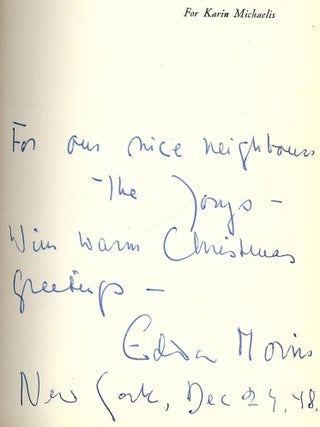 For Karin Michaelis
For our nice neighbours
- The Jonys -
With warm Christmas
greetings -
Edita Morris
New York, Dec 24, 48.